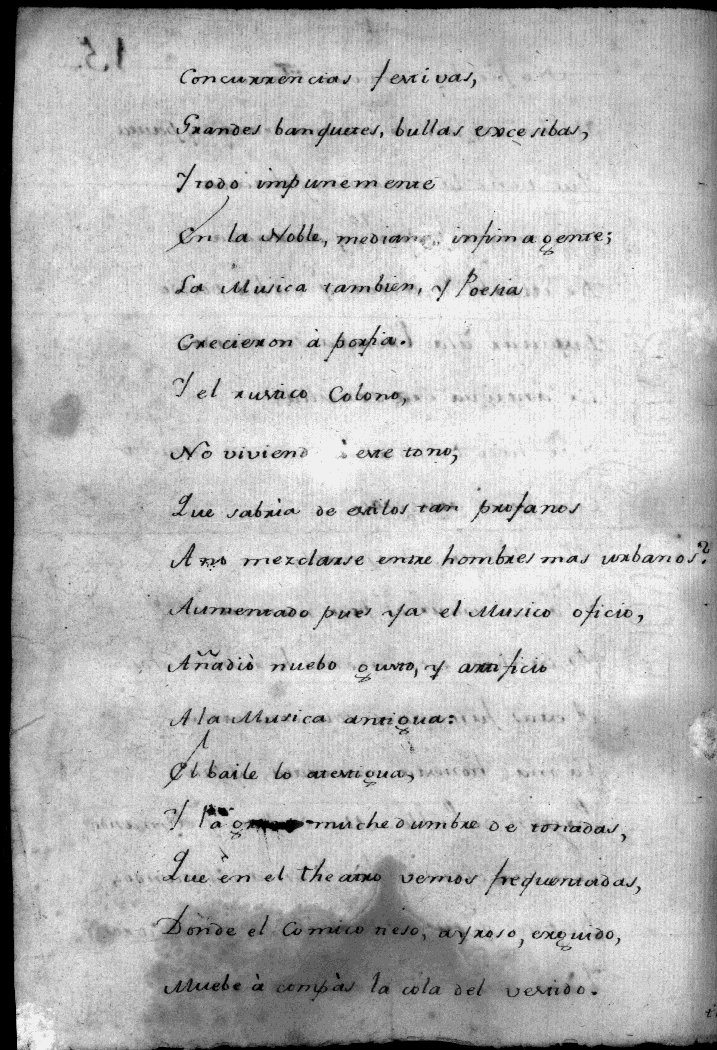 Concurrencias festivas,
Grandes banquetes, bullas excesibas,
Y todo impunemente
En la Noble, mediana, infima gente;
La Musica tambien, y Poesia
Crecieron à porfia.
Y el rustico Colono,
No viviendo à este tono,
Que sabria de estilos tan profanos
A no mezclarse entre hombres mas urbanos?
Aumentado pues ya el Musico oficio,
Añadiò nuebo gusto, y artificio
A la Musica antigua:
El baile lo atestigua,
Y la muchedumbre de tonadas,
Que en el theatro vemos frequentadas,
Donde el Comico tieso, ayroso, erguido,
Muebe à compàs la cola del vestido.